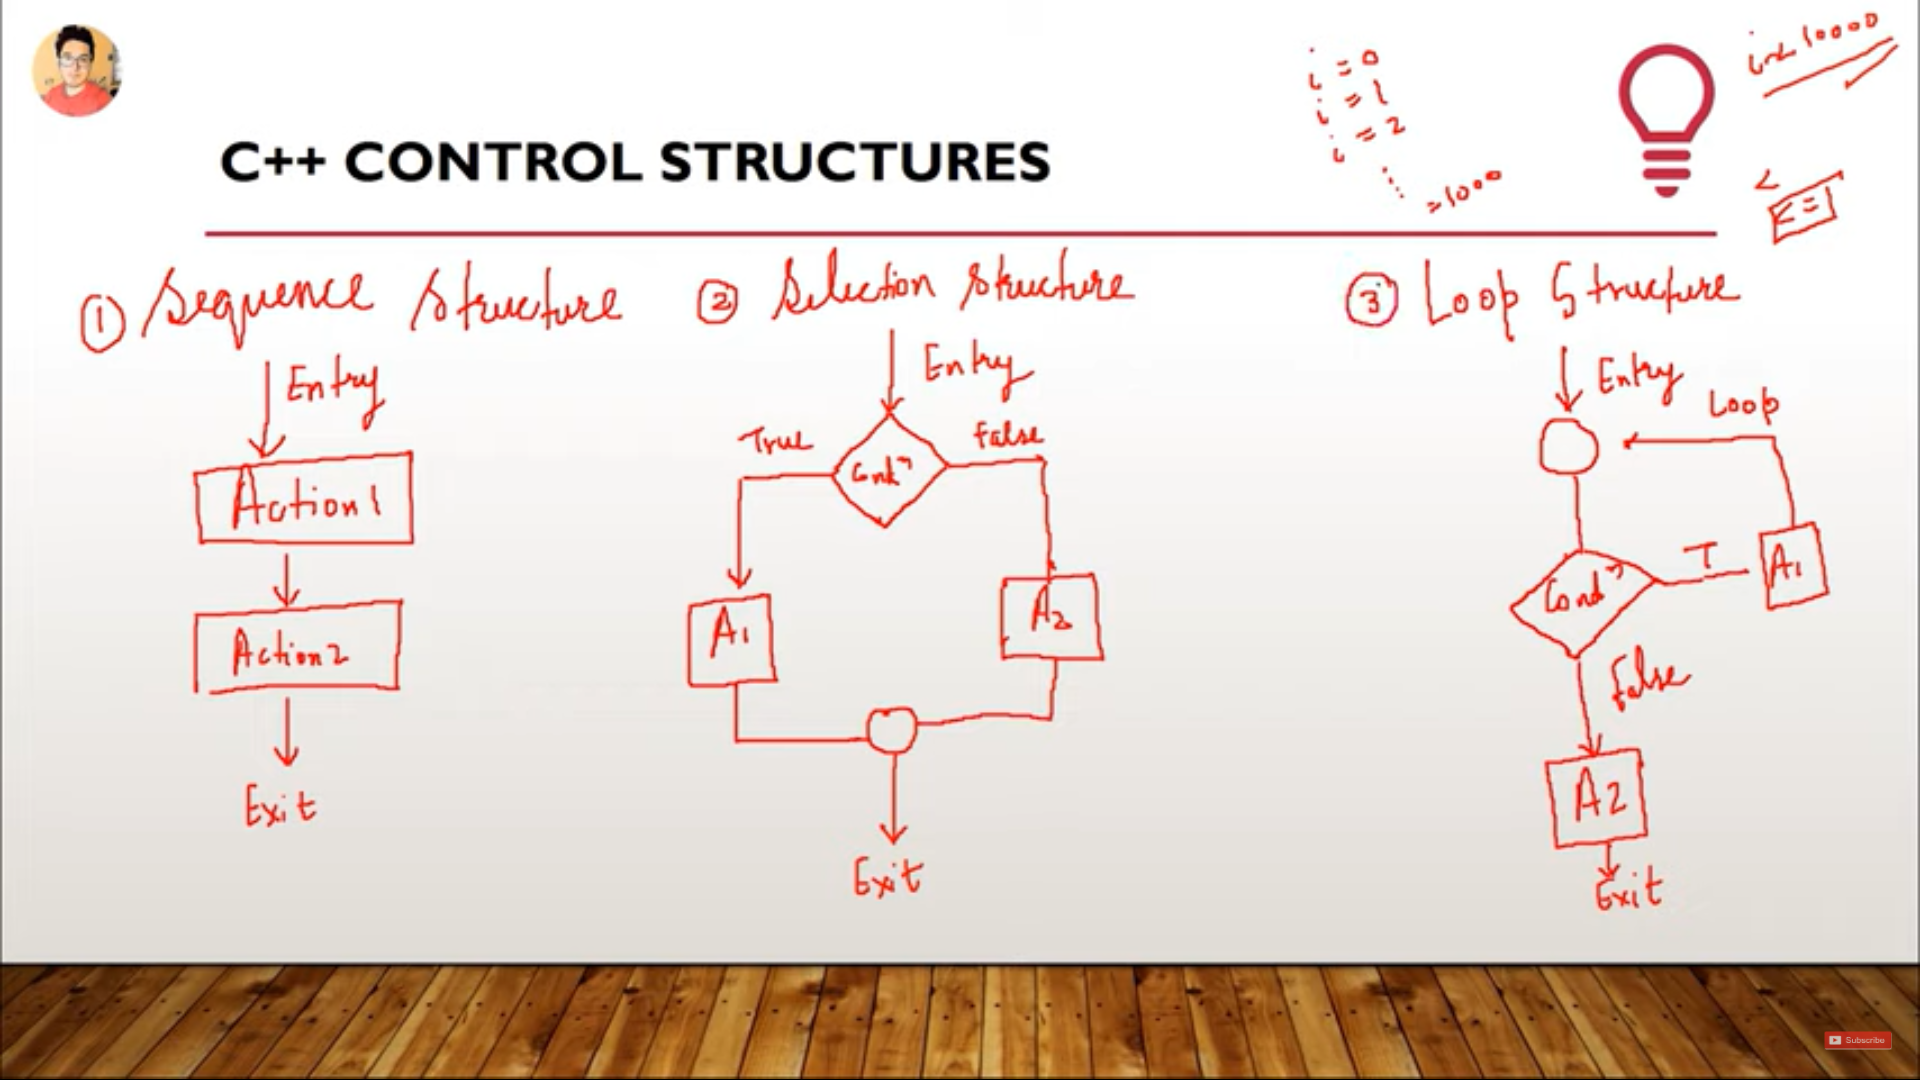 C++ CONTROL STRUCTURES
i = 0
i = 1
i = 2
= 1000
i < 10000
① Sequence Structure
Entry
Action 1
Action 2
Exit
② Selection Structure
Entry
True
False
Condⁿ
A1
A2
Exit
③ Loop Structure
Entry
Loop
Condⁿ
T
A1
False
A2
Exit
Subscribe